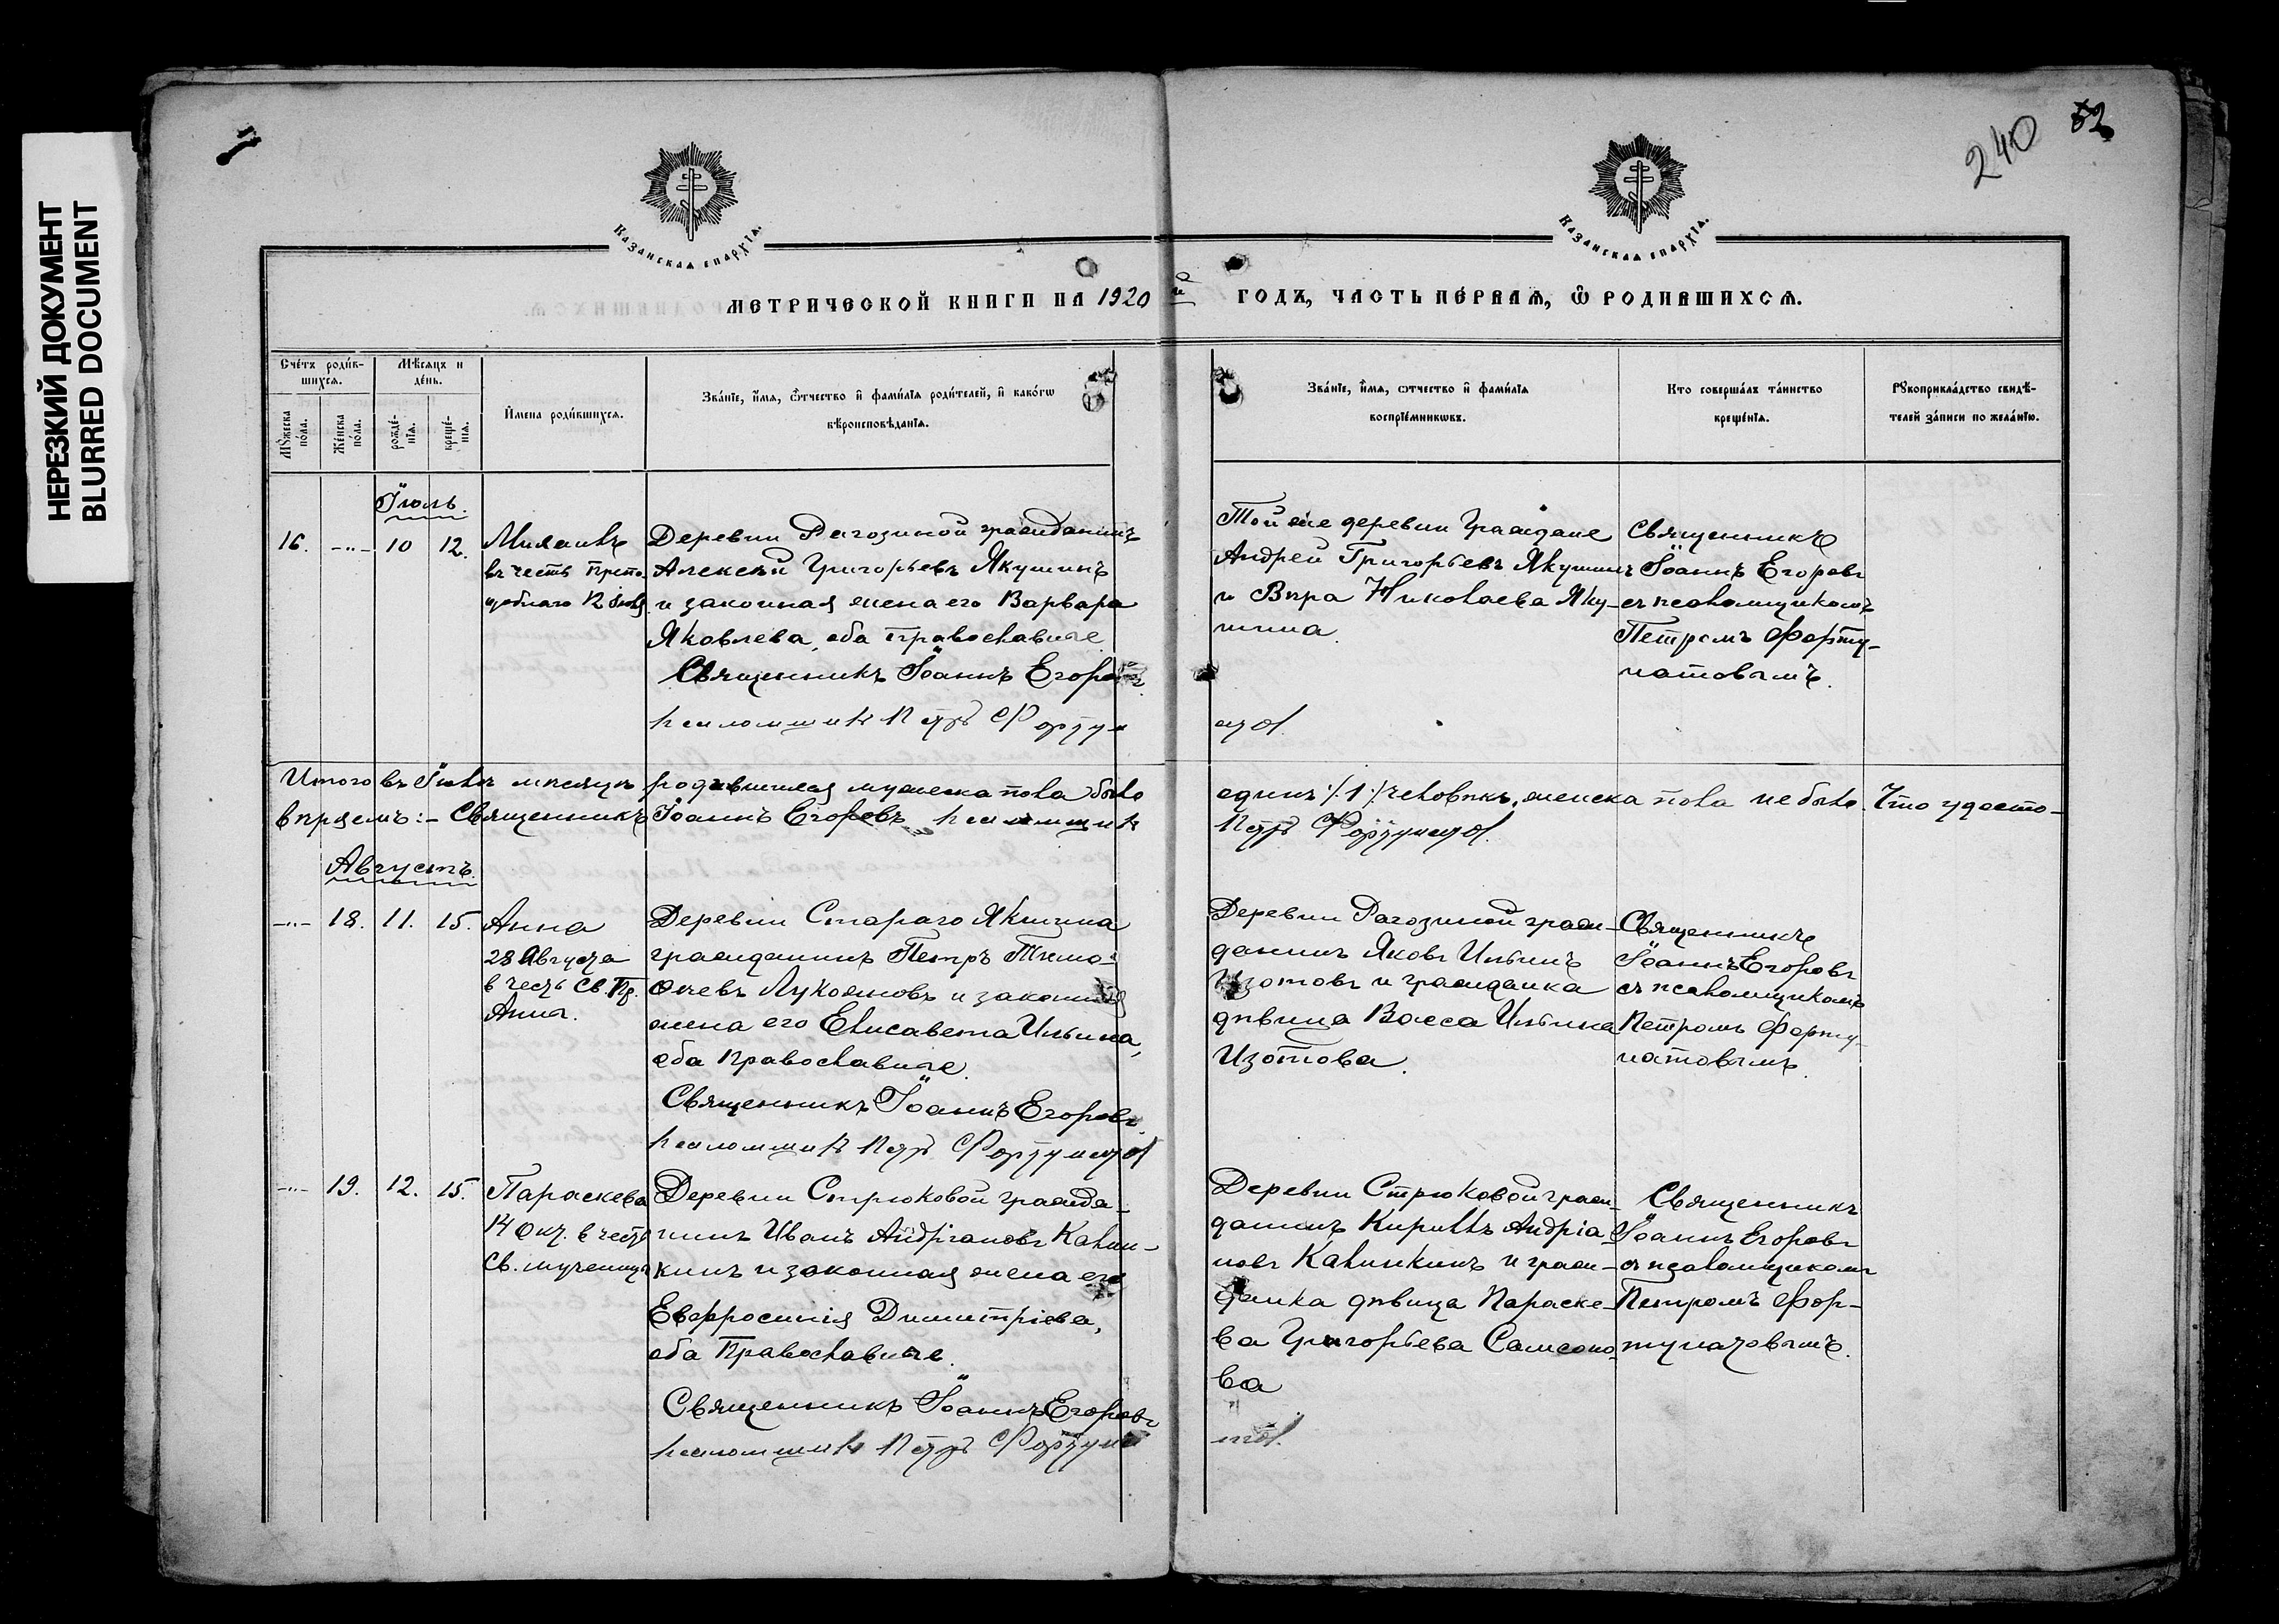 НЕРЕЗКИЙ ДОКУМЕНТ
BLURRED DOCUMENT
240
52
Казанская епархїа.
Казанская епархїа.
МЕТРИЧЕСКОЙ КНИГИ НА 1920 й ГОДЪ, ЧАСТЬ ПЕРВАЯ, Ѿ РОДИВШИХСЯ.
Сче́тъ роди́в-
шихся.
Мѣсяцъ и
де́нь.
Мꙋ́жеска
по́ла.
Же́нска
по́ла.
рожде́-
нїя.
креще́-
нїя.
И҆мена роди́вшихся.
Зва́нїе, и҆́мя, ѻ҆́тчество и҆ фами́лїя роди́телей, и҆ како́гѡ
вѣроисповѣ́данїя.
Зва́нїе, и҆́мя, ѻ҆́тчество и҆ фами́лїя
воспрїе́мникѡвъ.
Кто соверша́лъ та́инство
креще́нїя.
Рꙋкоприкла́дство свидѣ́-
телей за́писи по жела́нїю.
Іюль.
16. -"- 10 12.
Михаилъ
въ честь препо-
добнаго 12 Іюля
Деревни Рагозиной гражданинъ
Алексѣй Григорьевъ Якушинъ
и законная жена его Варвара
Яковлева, оба православные.
Священникъ Іоаннъ Егоровъ
псаломщик Петръ Фортун
атов.
Той же деревни Граждане
Андрей Григорьевъ Якушинъ
и Вѣра Николаева Яку-
шина.
Священникъ
Іоаннъ Егоровъ
съ псаломщикомъ
Петромъ Форту-
натовымъ.
Итого въ Іюлѣ мѣсяцѣ родившихся мужеска пола было один /:1:/ человѣкъ, женска пола не было. Что удосто-
вѣряемъ:- Священникъ Іоаннъ Егоровъ псаломщик Петръ Фортунатов.
Августъ.
-"- 18. 11. 15.
Анна
28 Августа
в честь Св. Пр.
Анны.
Деревни Стараго Якшина
гражданинъ Петръ Тимо-
ѳеевъ Лукояновъ и законная
жена его Елисавета Ильина,
оба Православные.
Священникъ Іоаннъ Егоровъ.
псаломщик Петръ Фортунатов
Деревни Рагозиной граж-
данинъ Яковъ Ильинъ
Изотовъ и гражданка
дѣвица Васса Ильина
Изотова.
Священникъ
Іоаннъ Егоровъ
съ псаломщикомъ
Петромъ Форту-
натовымъ.
-"- 19. 12. 15.
Параскева
14 Окт. в честь
Св. мученицы
Деревни Стрюковой гражда-
нинъ Иванъ Андріановъ Калин-
кинъ и законная жена его
Евфросинія Димитріева,
оба Православные.
Священникъ Іоаннъ Егоровъ
псаломщик Петръ Фортуна
тов.
Деревни Стрюковой граж-
данинъ Кириллъ Андріа-
новъ Калинкинъ и граж-
данка дѣвица Параске-
ва Григорьева Самсоно-
ва
Священникъ
Іоаннъ Егоровъ
съ псаломщикомъ
Петромъ Фор-
тунатовымъ.